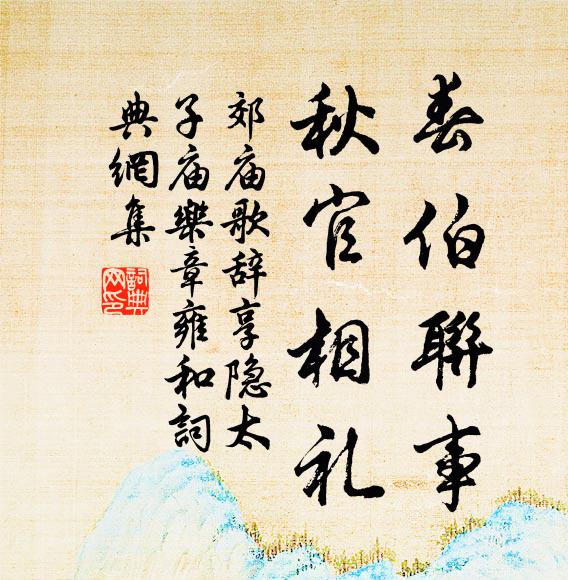 春伯聯事
秋官相礼
郊庙歌辞享隐太
子庙樂章雍和詞
典網集
詞典
网印